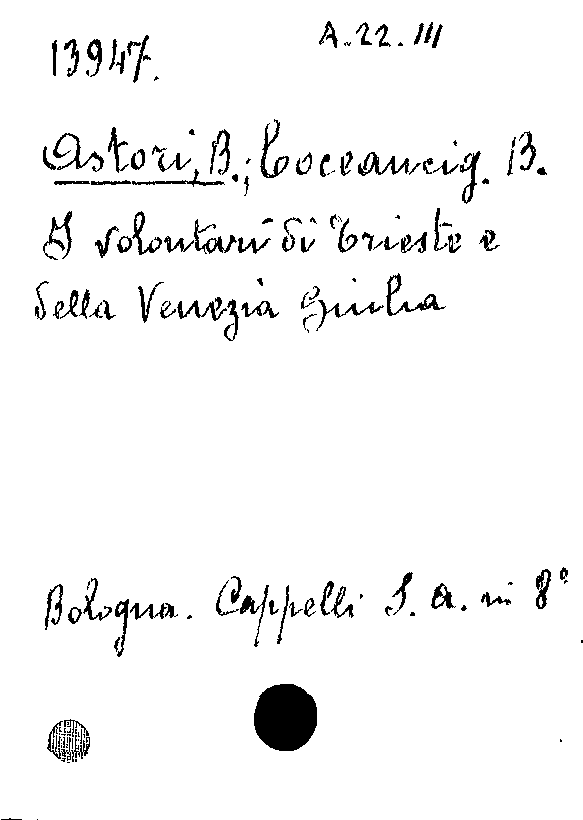 13947.
A.22.III
Astori, B.; Coceancig. B.
I volontari di Trieste e
della Venezia Giulia
Bologna. Cappelli S. a. in 8°